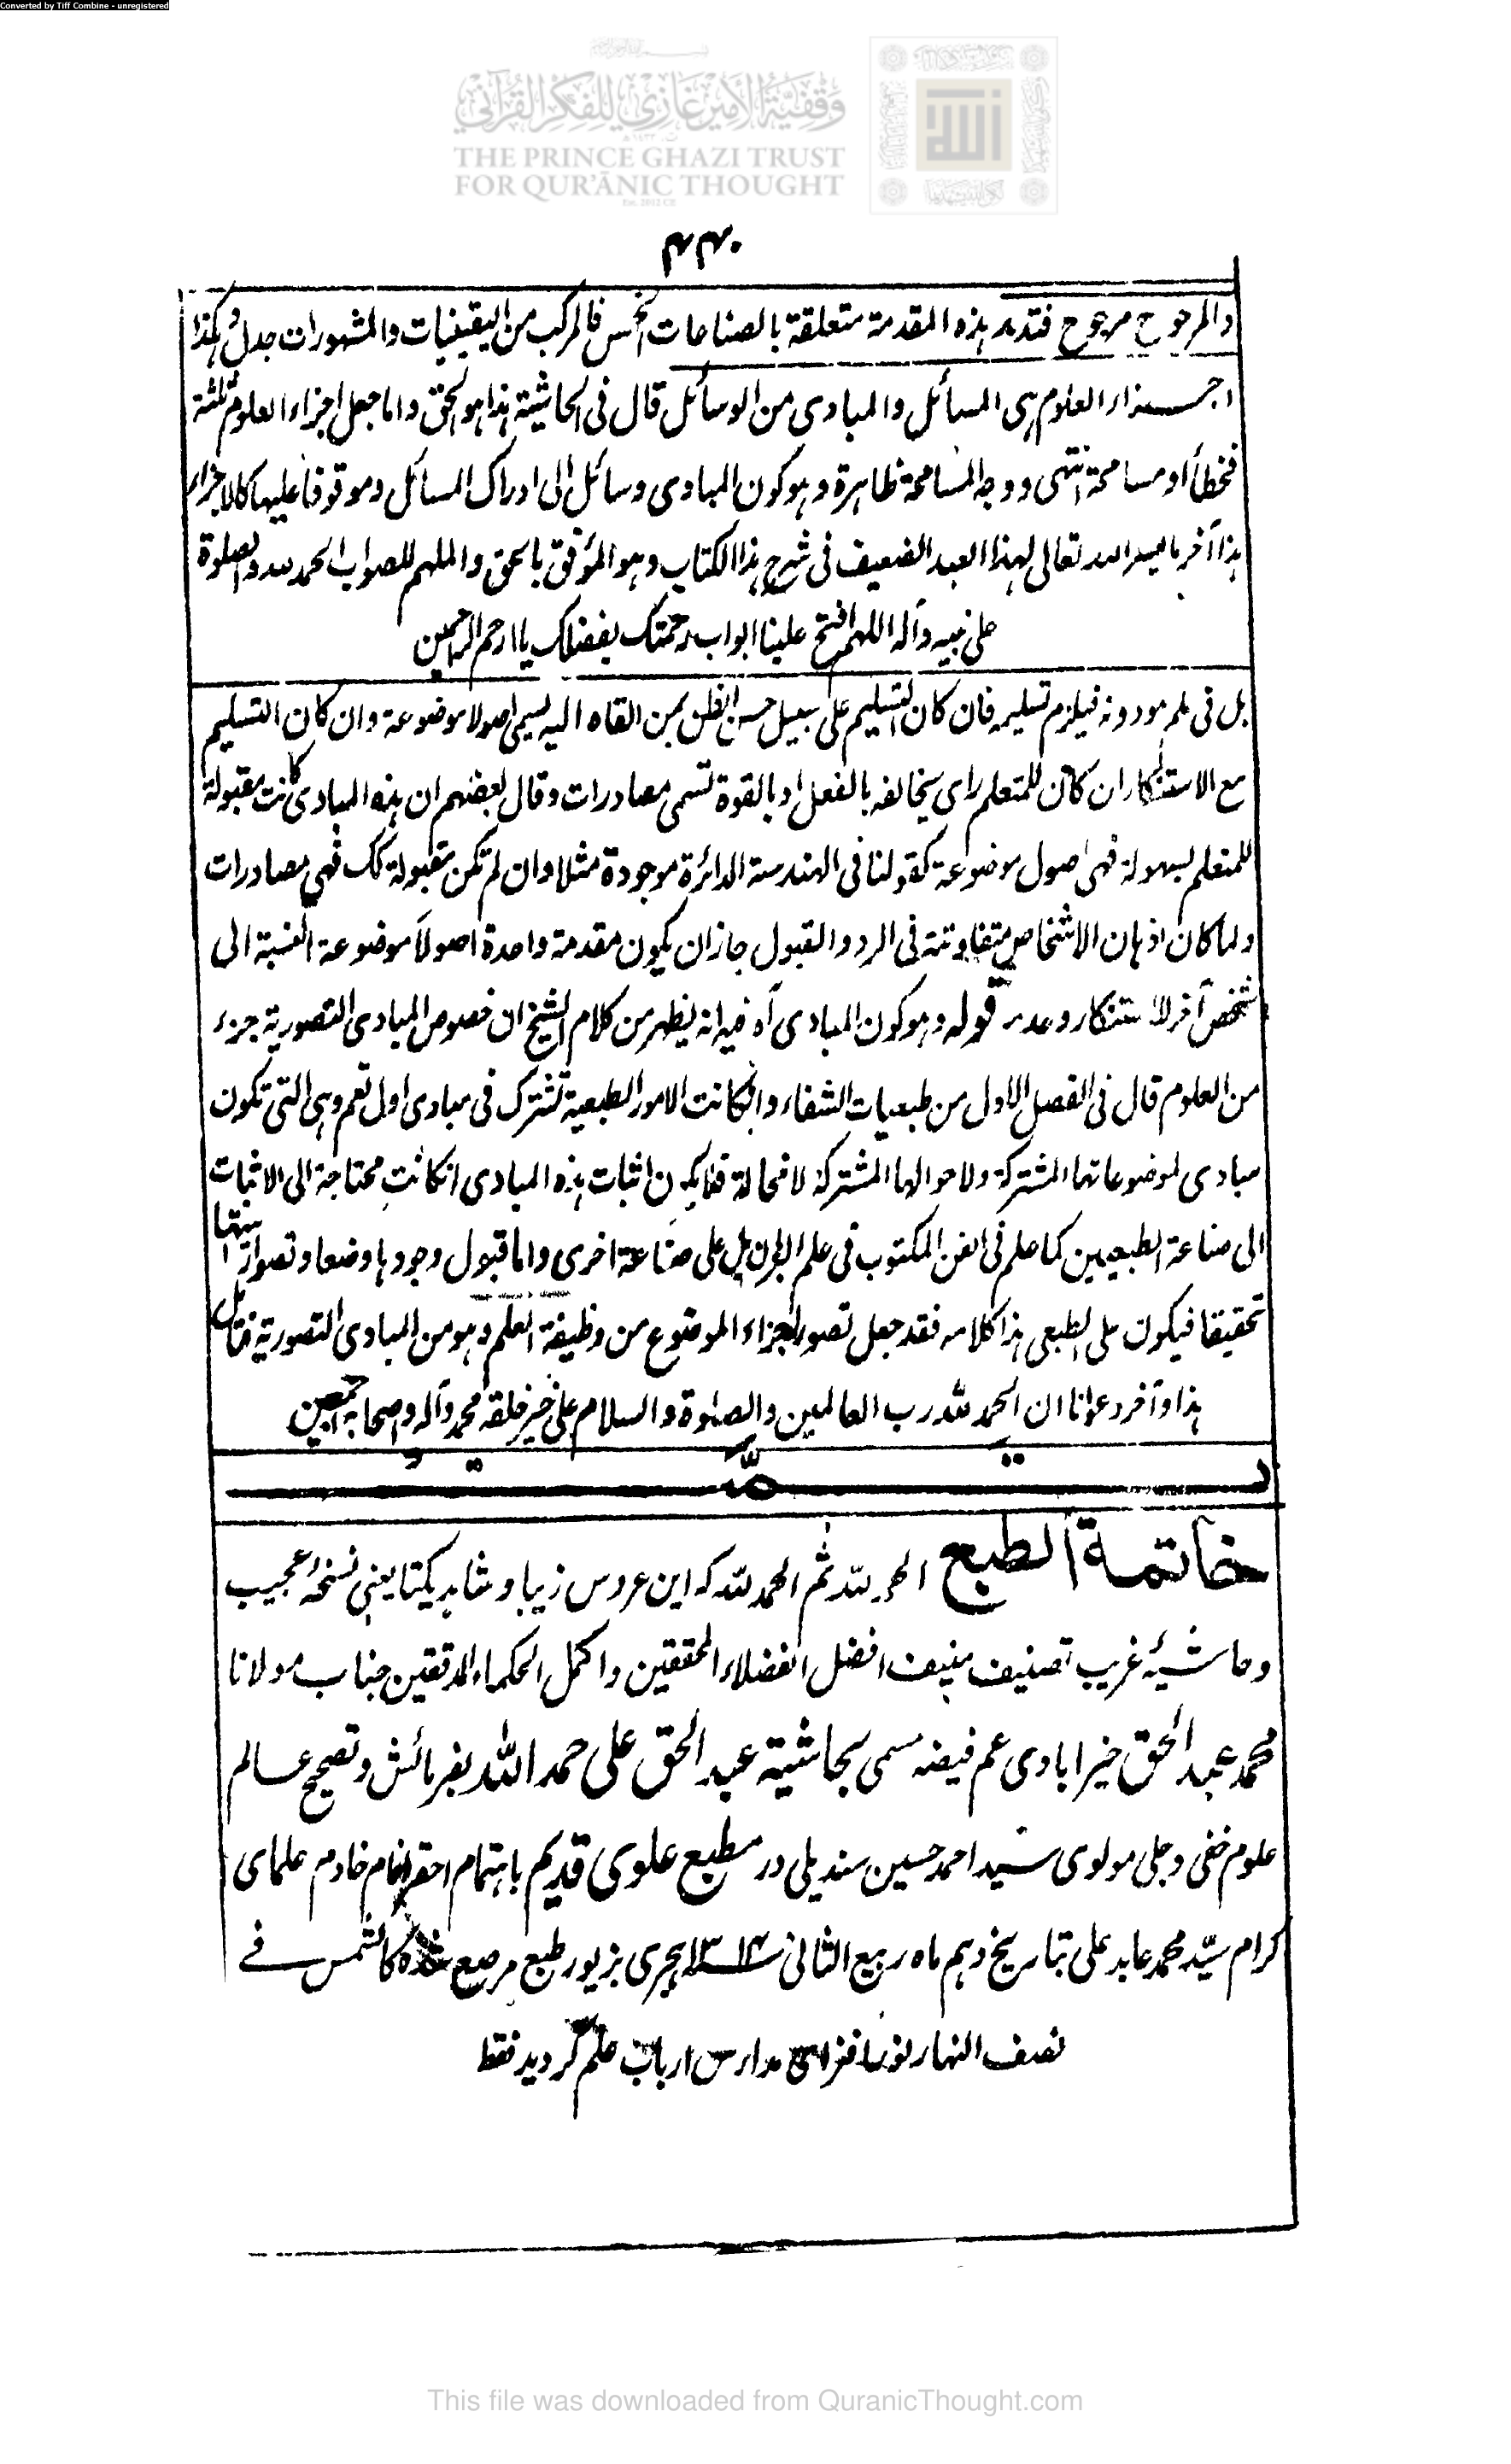 Converted by Tiff Combine - unregistered
وقفية الأمير غازي للفكر القرآني
THE PRINCE GHAZI TRUST
FOR QUR'ĀNIC THOUGHT
Est. 2012 CE
۴۴۰
والمرجوح مرجوح فتدبر هذه المقدمة متعلقة بالصناعات الخمس فالمركب من اليقينيات والمشهورات جدل وهكذا
اجزاء العلوم هى المسائل والمبادى من الوسائل قال فى الحاشية هذا هو الحق واما جعل اجزاء العلوم ثلثة
فخطأ او مسامحة انتهى ووجه المسامحة ظاهرة وهو كون المبادى وسائل الى ادراك المسائل وموقوفا عليها كالاجزاء
هذا آخر ما يسر الله تعالى لهذا العبد الضعيف فى شرح هذا الكتاب وهو الموفق بالحق والملهم للصواب الحمد لله والصلوة
على نبيه وآله اللهم افتح علينا ابواب رحمتك بفضلك يا ارحم الراحمين
بل فى علم هو دونه فيلزم تسليمه فان كان التسليم على سبيل حسن الظن بمن القاه اليه يسمى اصولا موضوعة وان كان التسليم
مع الاستنكار ان كان للمتعلم راى يخالفه بالفعل او بالقوة تسمى مصادرات وقال بعضهم ان هذه المبادى كانت مقبولة
للمتعلم بسهولة فهى اصول موضوعة كقولنا فى الهندسة الدائرة موجودة مثلا وان لم تكن مقبولة كك فهى مصادرات
ولما كان اذهان الاشخاص متفاوتة فى الرد والقبول جاز ان يكون مقدمة واحدة اصولاً موضوعة النسبة الى
شخص آخر لاستنكار وعدمه قوله وهو كون المبادى آه فيه انه يظهر من كلام الشيخ ان خصوص المبادى التصورية جزء
من العلوم قال فى الفصل الاول من طبعيات الشفاء وان كانت الامور الطبعية تشترك فى مبادى اول تعم وهى التى تكون
مبادى لموضوعاتها المشتركة ولاحوالها المشتركة لا محالة فلا يكون اثبات هذه المبادى ان كانت محتاجة الى الاثبات
الى صناعة الطبيعيين كما علم فى الفن المكتوب فى علم البرهان بل على صناعة اخرى واما قبول وجودها وضعا وتصور ماهيتها
تحقيقا فيكون على الطبعى هذا كلامه فقد جعل تصور اجزاء الموضوع من وظيفة العلم وهو من المبادى التصورية فتأمل
هذا وآخر دعوانا ان الحمد لله رب العالمين والصلوة والسلام على خير خلقه محمد وآله واصحابه اجمعين
خاتمة الطبع الحمد لله ثم الحمد لله كه اين عروس زيبا و شاهد يكتا يعنى نسخۂ عجيب
و حاشيۂ غريب تصنيف منيف افضل الفضلاء المحققين و اكمل الحكماء المدققين جناب مولانا
محمد عبد الحق خيرابادى عم فيضه مسمى بحاشية عبد الحق على حمد الله بفرمائش و تصحيح عالم
علوم خفى و جلى مولوى سيد احمد حسين سنديلى در مطبع علوى قديم باهتمام احقر الانام خادم علماى
كرام سيّد محمد عابد على بتاريخ دهم ماه ربيع الثانى سنه ۱۳۱۴ هجرى بزيور طبع مرصع شده كالشمس فے
نصف النهار نور افزاى مدارس ارباب علم گرديد فقط
This file was downloaded from QuranicThought.com